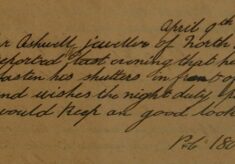 April 9th
r Oshwell jeweller of North
reported last evening that he
asten his shutters in front of
nd wishes the night duty
would keep an good look
P.C. 180